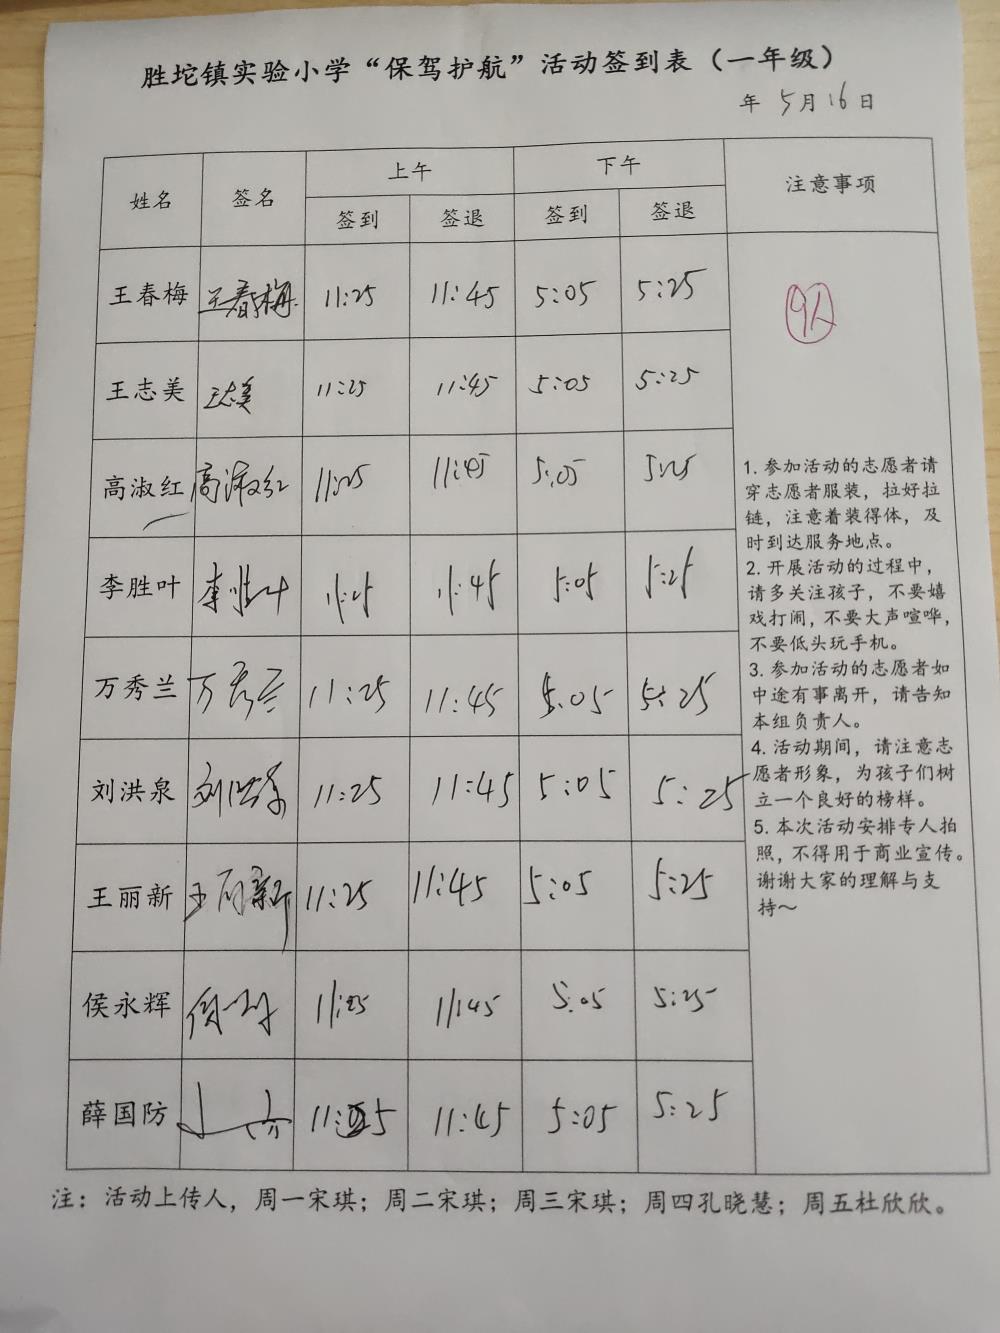 胜坨镇实验小学“保驾护航”活动签到表（一年级）
年 5月16日
姓名 签名 上午 下午 注意事项
签到 签退 签到 签退
王春梅 王春梅 11:25 11:45 5:05 5:25
9人
王志美 王志美 11:25 11:45 5:05 5:25
高淑红 高淑红 11:25 11:45 5:05 5:25
李胜叶 李胜叶 11:25 11:45 5:05 5:25
万秀兰 万秀兰 11:25 11:45 5:05 5:25
刘洪泉 刘洪泉 11:25 11:45 5:05 5:25
王丽新 王丽新 11:25 11:45 5:05 5:25
侯永辉 11:25 11:45 5:05 5:25
薛国防 11:25 11:45 5:05 5:25
1. 参加活动的志愿者请
穿志愿者服装，拉好拉
链，注意着装得体，及
时到达服务地点。
2. 开展活动的过程中，
请多关注孩子，不要嬉
戏打闹，不要大声喧哗，
不要低头玩手机。
3. 参加活动的志愿者如
中途有事离开，请告知
本组负责人。
4. 活动期间，请注意志
愿者形象，为孩子们树
立一个良好的榜样。
5. 本次活动安排专人拍
照，不得用于商业宣传。
谢谢大家的理解与支
持～
注：活动上传人，周一宋琪；周二宋琪；周三宋琪；周四孔晓慧；周五杜欣欣。